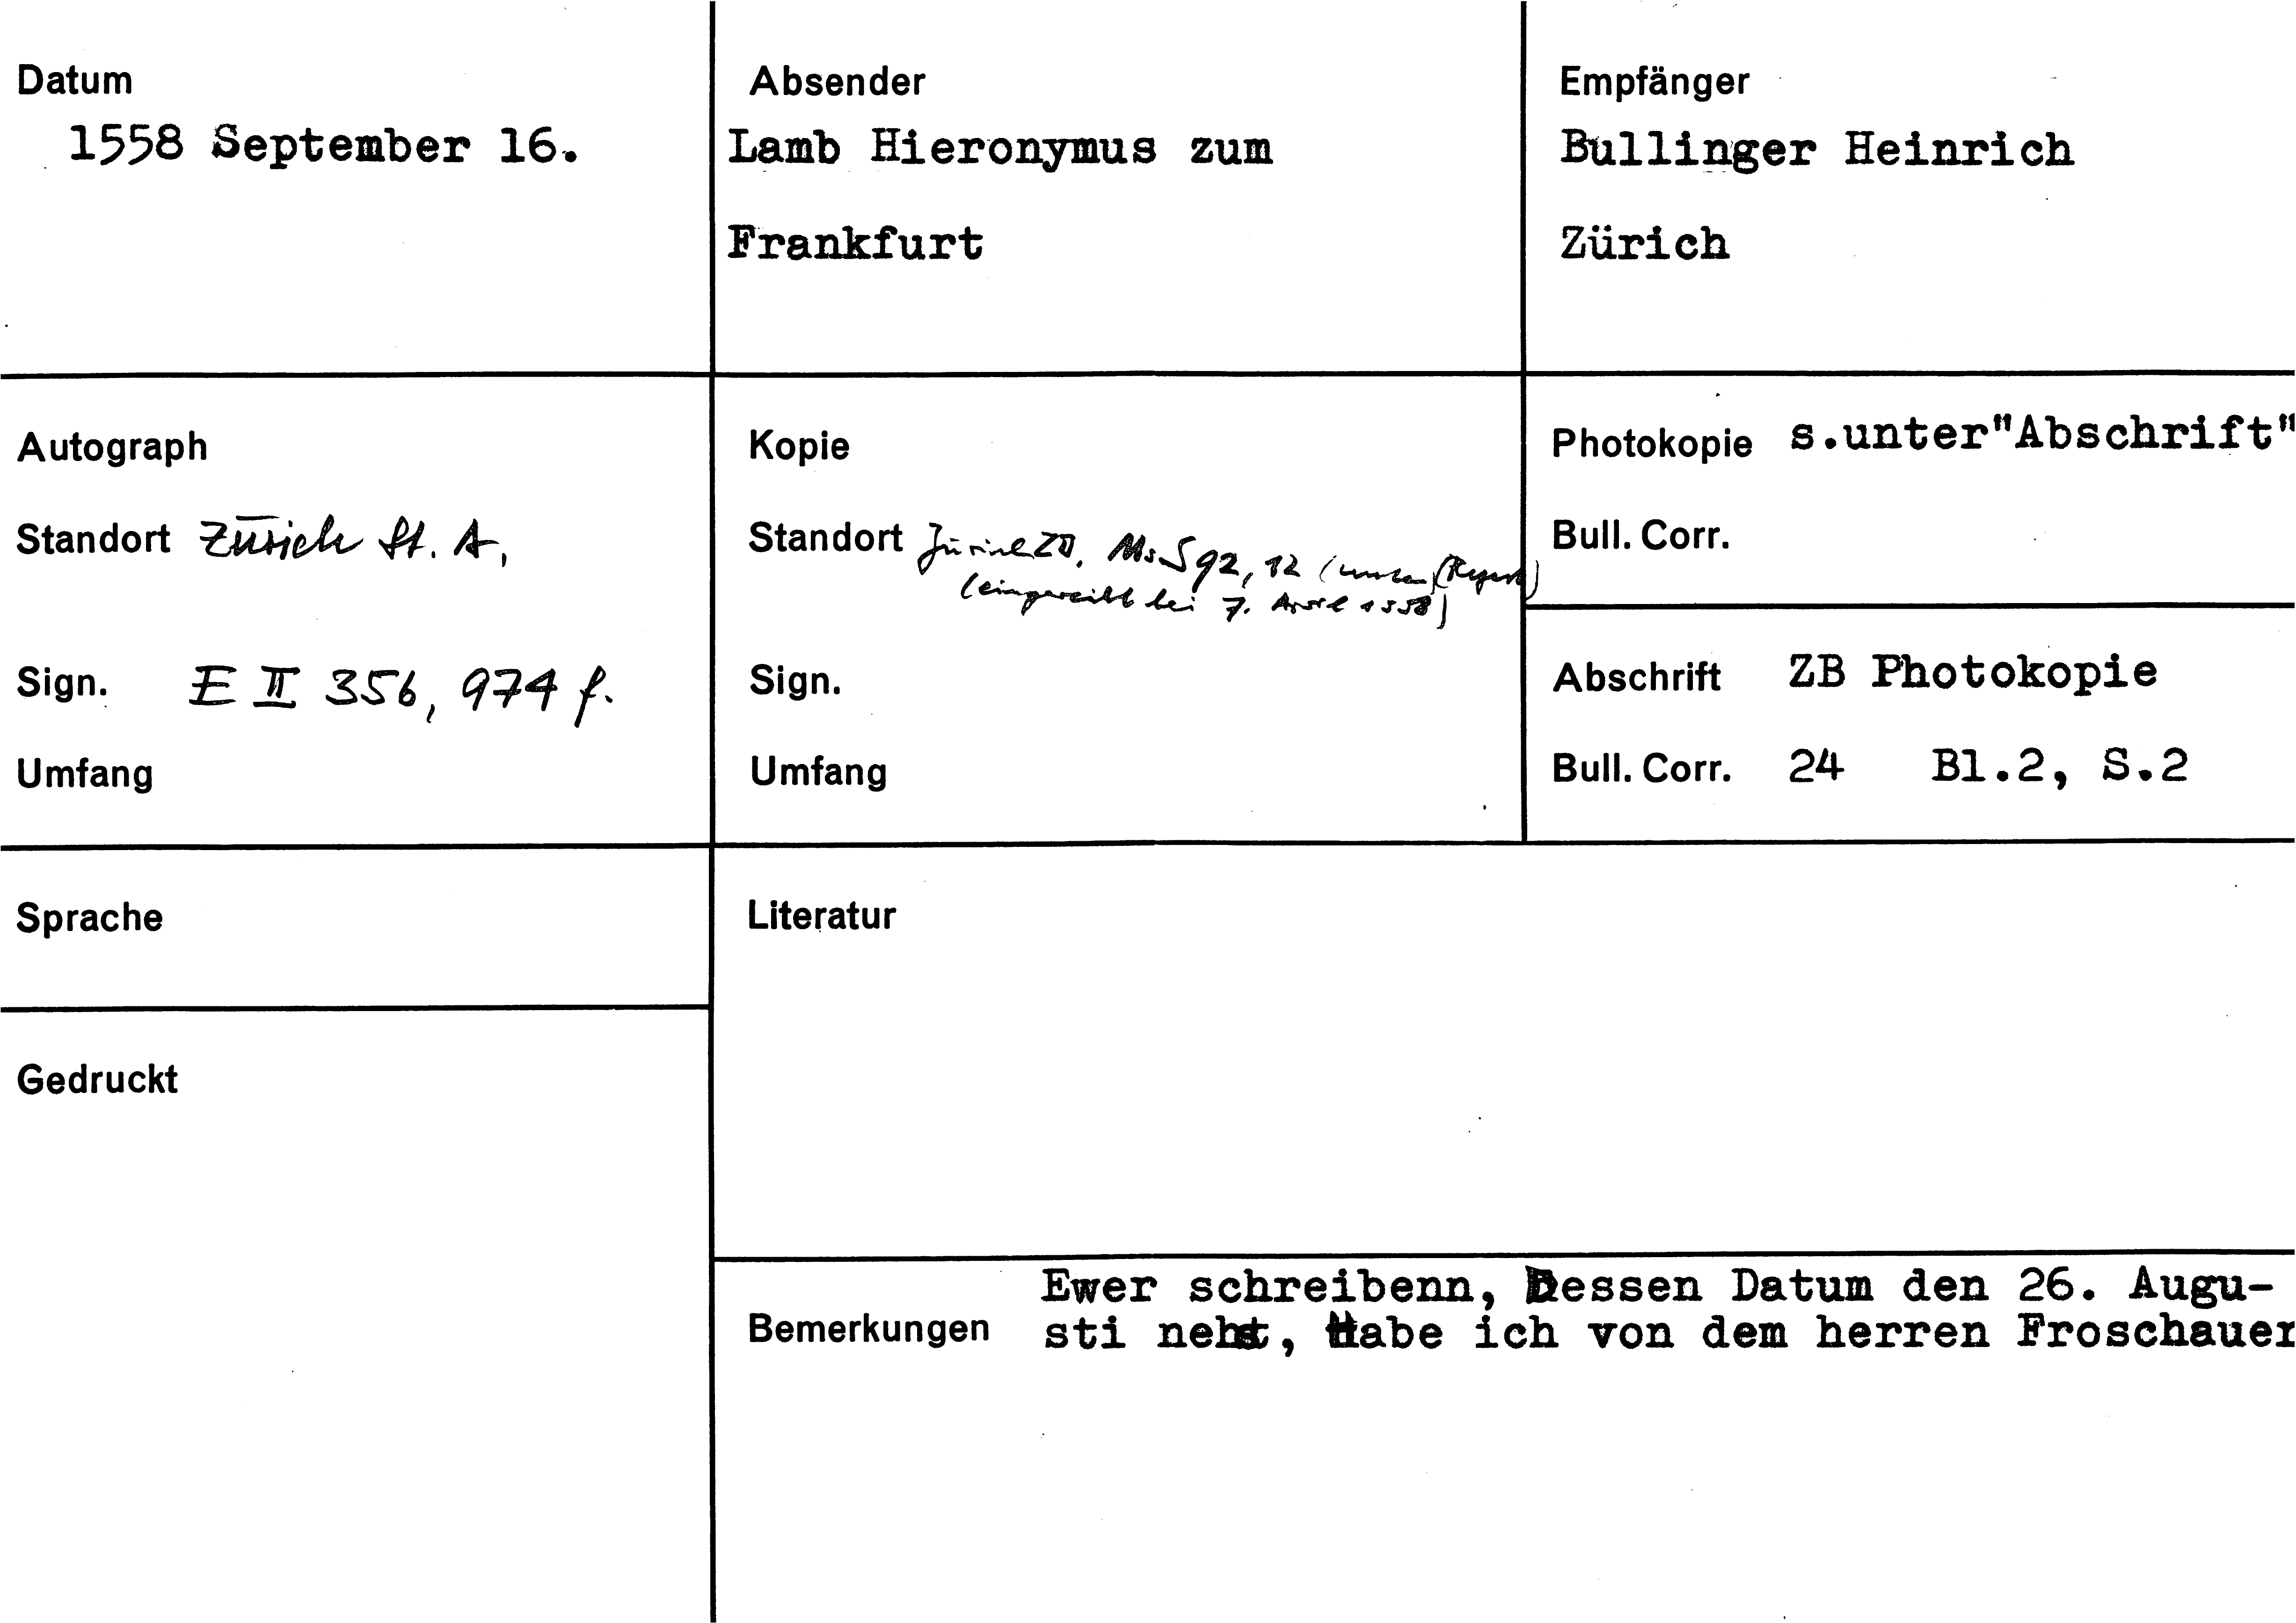 Datum
1558 September 16.
Absender
Lamb Hieronymus zum
Frankfurt
Empfänger
Bullinger Heinrich
Zürich
Autograph
Standort Zürich St. A,
Sign. E II 356, 974 f.
Umfang
Kopie
Standort Zürich ZB, Ms. S 92, 12 (unten) (Regest)
(eingereiht bei 7. April 1558)
Sign.
Umfang
Photokopie s.unter"Abschrift"
Bull. Corr.
Abschrift ZB Photokopie
Bull. Corr. 24 Bl.2, S.2
Sprache
Literatur
Gedruckt
Bemerkungen
Ewer schreibenn, Dessen Datum den 26. Augu-
sti nehst, Habe ich von dem herren Froschauer